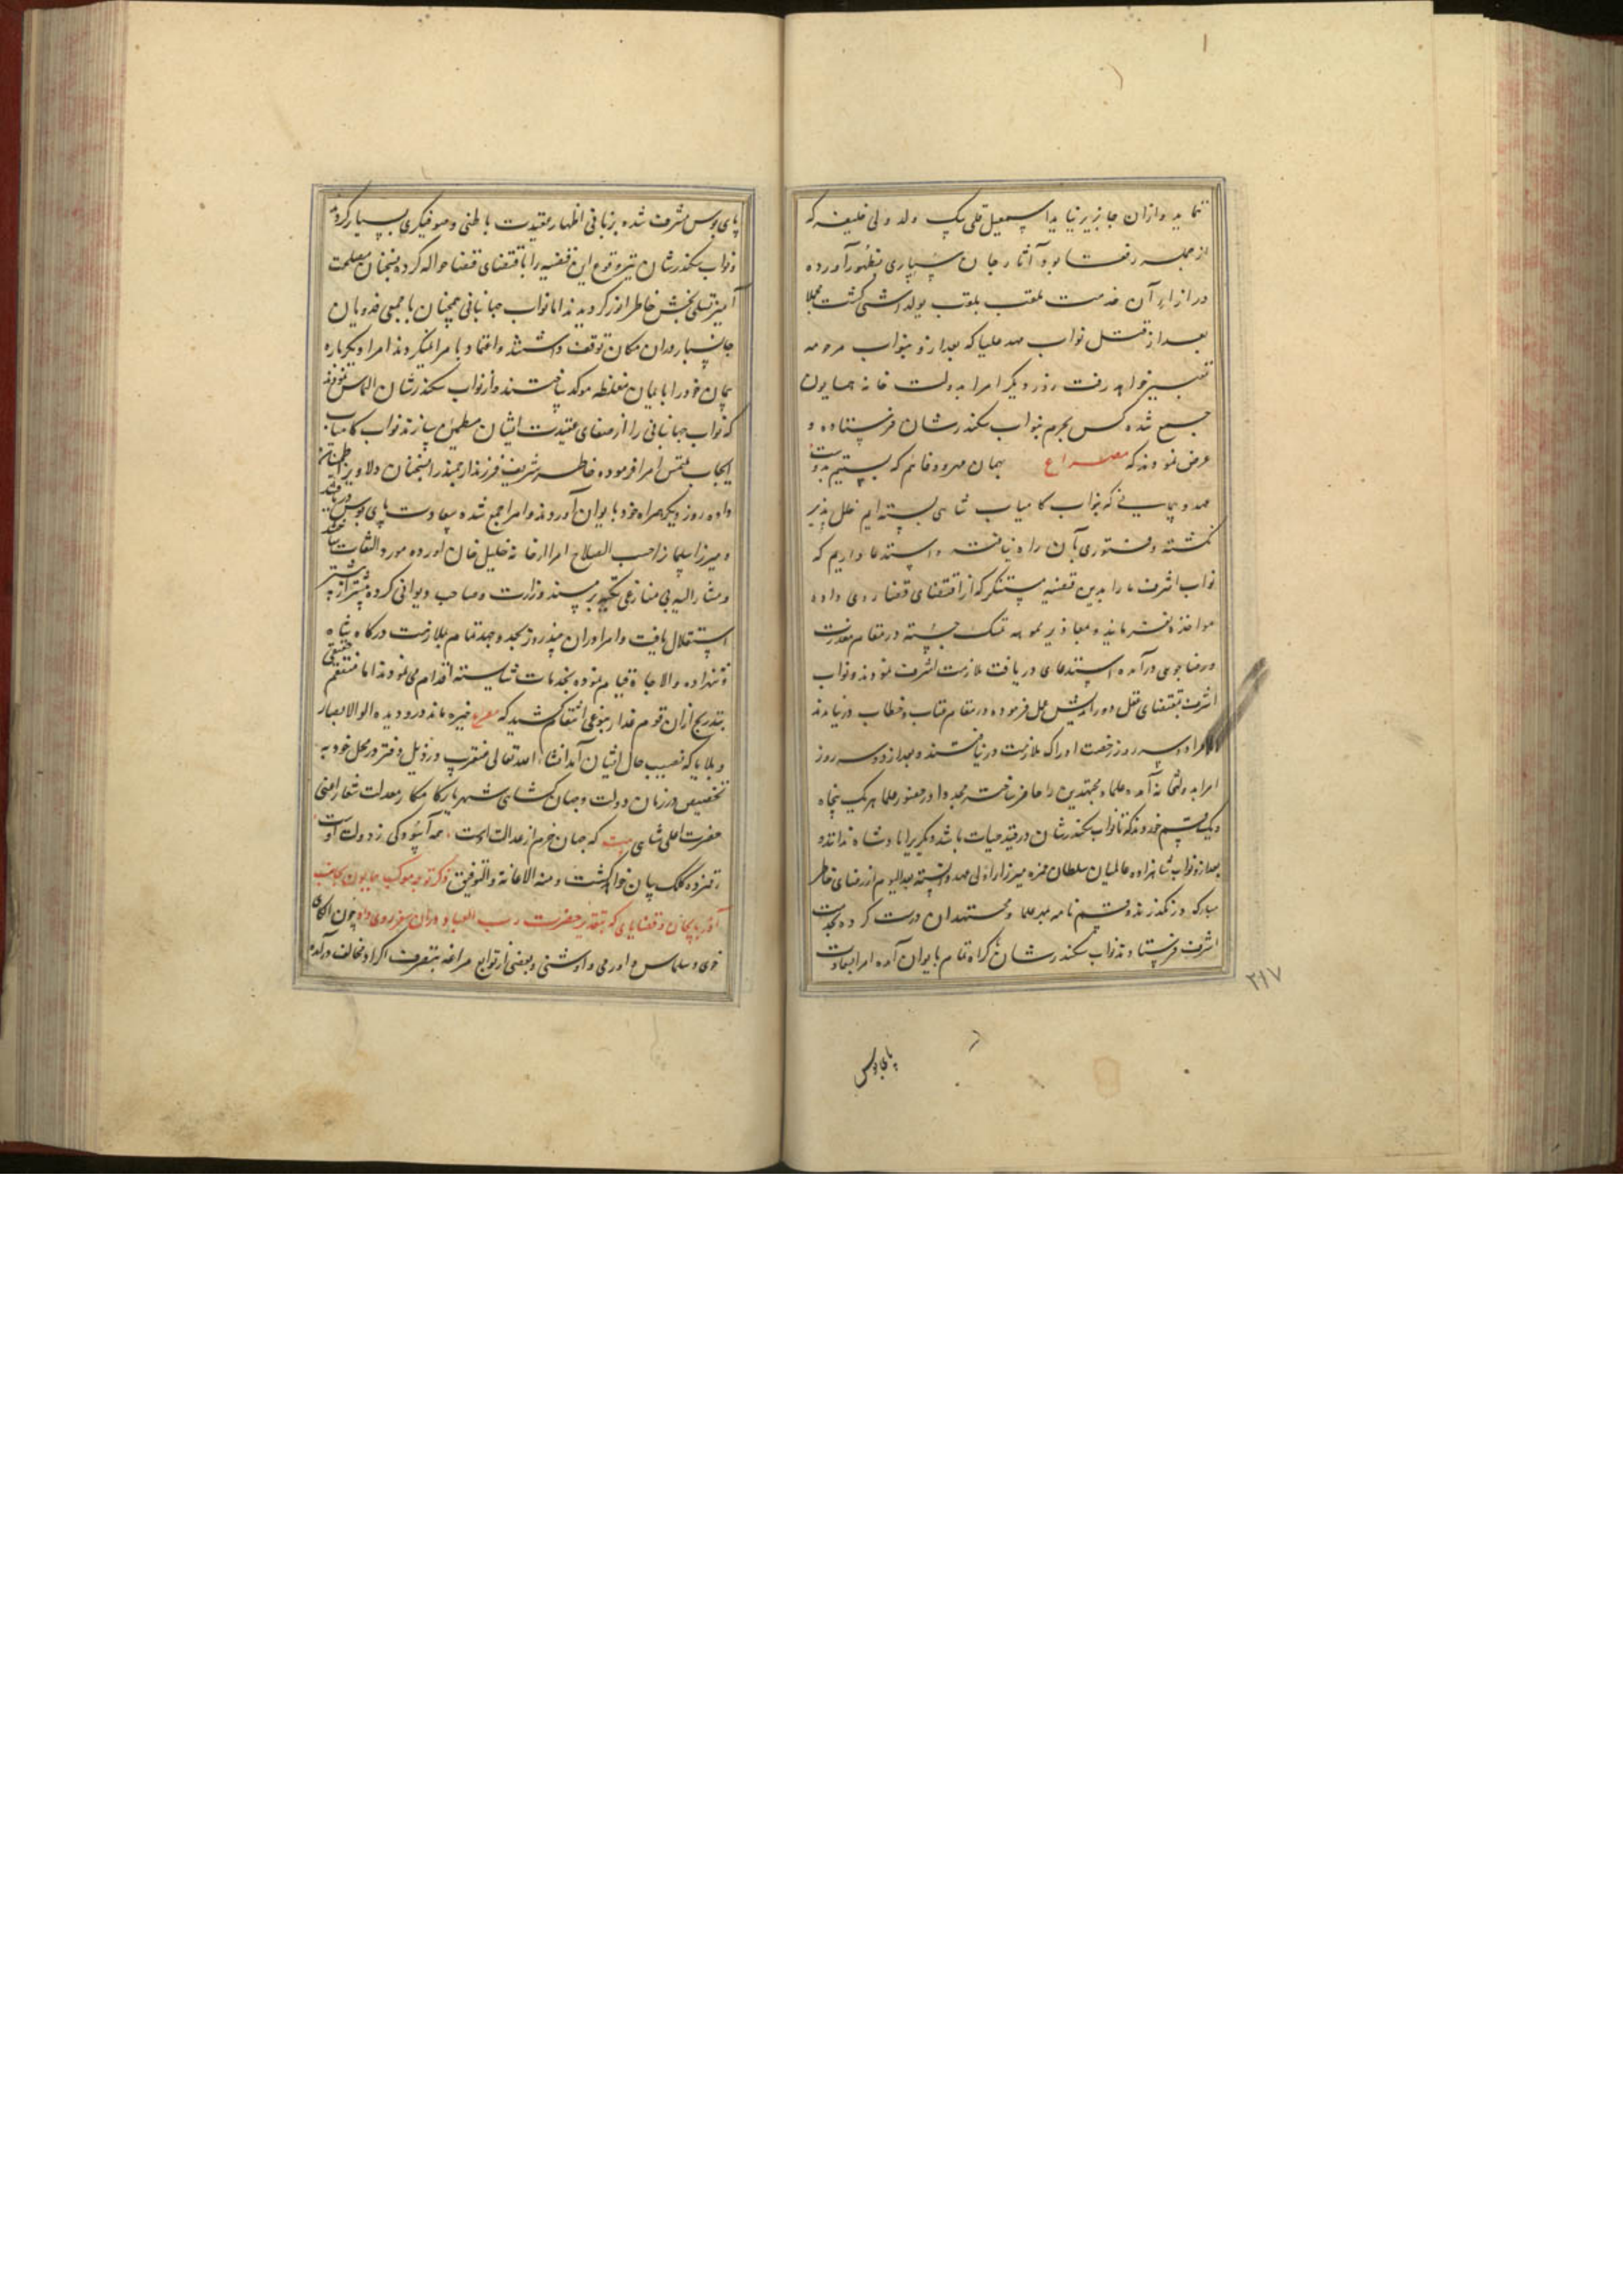 نماید و از ان جا بزیر نیاید اسمعیل قلی بیک ولد ولی خلیفه که
از جمله رفقا بود آثار جان سپاری بظهور آورده
در ازاء آن خدمت بلقب یولداشی گشت مجلا
بعد از قتل نواب مهد علیا که بعد ازو بنواب مرحومه
تعبیر خواهد رفت روز دیگر امرا بدولت خانه همایون
جمع شده کس بحرم بنواب سکندرشان فرستاده و
عرض نمودند که مصراع همان مهر و وفائم که بستیم بدوست
عهد و پیمانی که بنواب کامیاب شاهی بسته ایم خلل پذیر
نگشته و فتوری بآن راه نیافته و استدعا داریم که
نواب اشرف ما را بدین قضیه مستنکر که از اقتضای قضا روی داده
مواخذه نفرمایند و بمعاذیر مموهه تمسک جسته در مقام معذرت
و رضا جوئی درآمده استدعای دریافت ملازمت اشرف نمودند و نواب
اشرف بمقتضای عقل دور اندیش عمل فرموده در مقام عتاب و خطاب در نیامدند
امرا دو سه روز رخصت ادراک ملازمت در نیافتند و بعد از دو سه روز
امرا بدولتخانه آمده علما و مجتهدین را حاضر ساخته مجددا در حضور علما هر یک پنجاه
و یک قسم خوردند که تا نواب سکندرشان در قید حیات باشد دیگریرا پادشاه ندانند و
بعد ازو نواب شاهزاده عالمیان سلطان حمزه میرزا را ولی عهد دانسته بعد الیوم از رضای خاطر
مبارک در نگذرند و قسم نامه بمهر علما و مجتهدان درست کرده بخدمت
اشرف فرستادند نواب سکندرشان باکراه تمام بایوان آمده امرا بسعادت
پای بوس
۲۱۷
پای بوس مشرف شده بزبانی اظهار عقیدت باطنی و صوفیگری بسیار کردند
و نواب سکندرشان نیز وقوع این قضیه را باقتضای قضا حواله کرده بسخنان مصلحت
آمیز تسلی بخش خاطر امرا گردیدند اما نواب جهانبانی همچنان با جمعی فدویان
جانسپار دران مکان توقف داشتند و اعتماد بامرا نمیکردند امرا دیگرباره
پیمان خود را بایمان مغلظه موکد ساختند و از نواب سکندرشان التماس نمودند
که نواب جهانبانی را از صفای عقیدت ایشان مطمئن سازند نواب کامیاب
ایجاب ملتمس امرا فرموده خاطر شریف فرزند ارجمند را بسخنان دلاویز اطمینان
داده روز دیگر همراه خود بایوان آوردند و امرا جمع شده بسعادت پای بوس دریافتند
و میرزا سلمان را حسب الصلاح امرا از خانه خلیل خان آورده مورد التفات ساختند
و مشار الیه بی منازعی تکیه بر مسند وزارت و صاحب دیوانی کرده بیشتر از پیشتر
استقلال یافت و امرا دران چند روز بجد و جهد تمام بملازمت درگاه شاه
و شهزاده والا جاه قیام نموده بخدمات شایسته اقدام می نمودند اما منتقم حقیقی
بتدریج ازان قوم غدار بنوعی انتقام کشید که مصرع خیره ماند درو دیده الوالابصار
و بلایا که نصیب حال ایشان آمد انشاء الله تعالی عنقریب در ذیل دفتر در محل خود به
تخصیص در زمان دولت و جهان گشای شهریار کامکار معدلت شعار اعنی
حضرت اعلی شاهی بیت که جهان خرم از عدالت اوست همه آسودگی ز دولت اوست
رقمزده کلک بیان خواهد گشت و منه الاعانة والتوفیق ذکر توجه موکب همایون بجانب
آذربایجان و قضایای که بتقدیر حضرت رب العباد دران سفر روی داد چون الکای
خوی و سلماس و اورمی و اوشنی و بعضی از توابع مراغه بتصرف اکراد مخالف درآمده